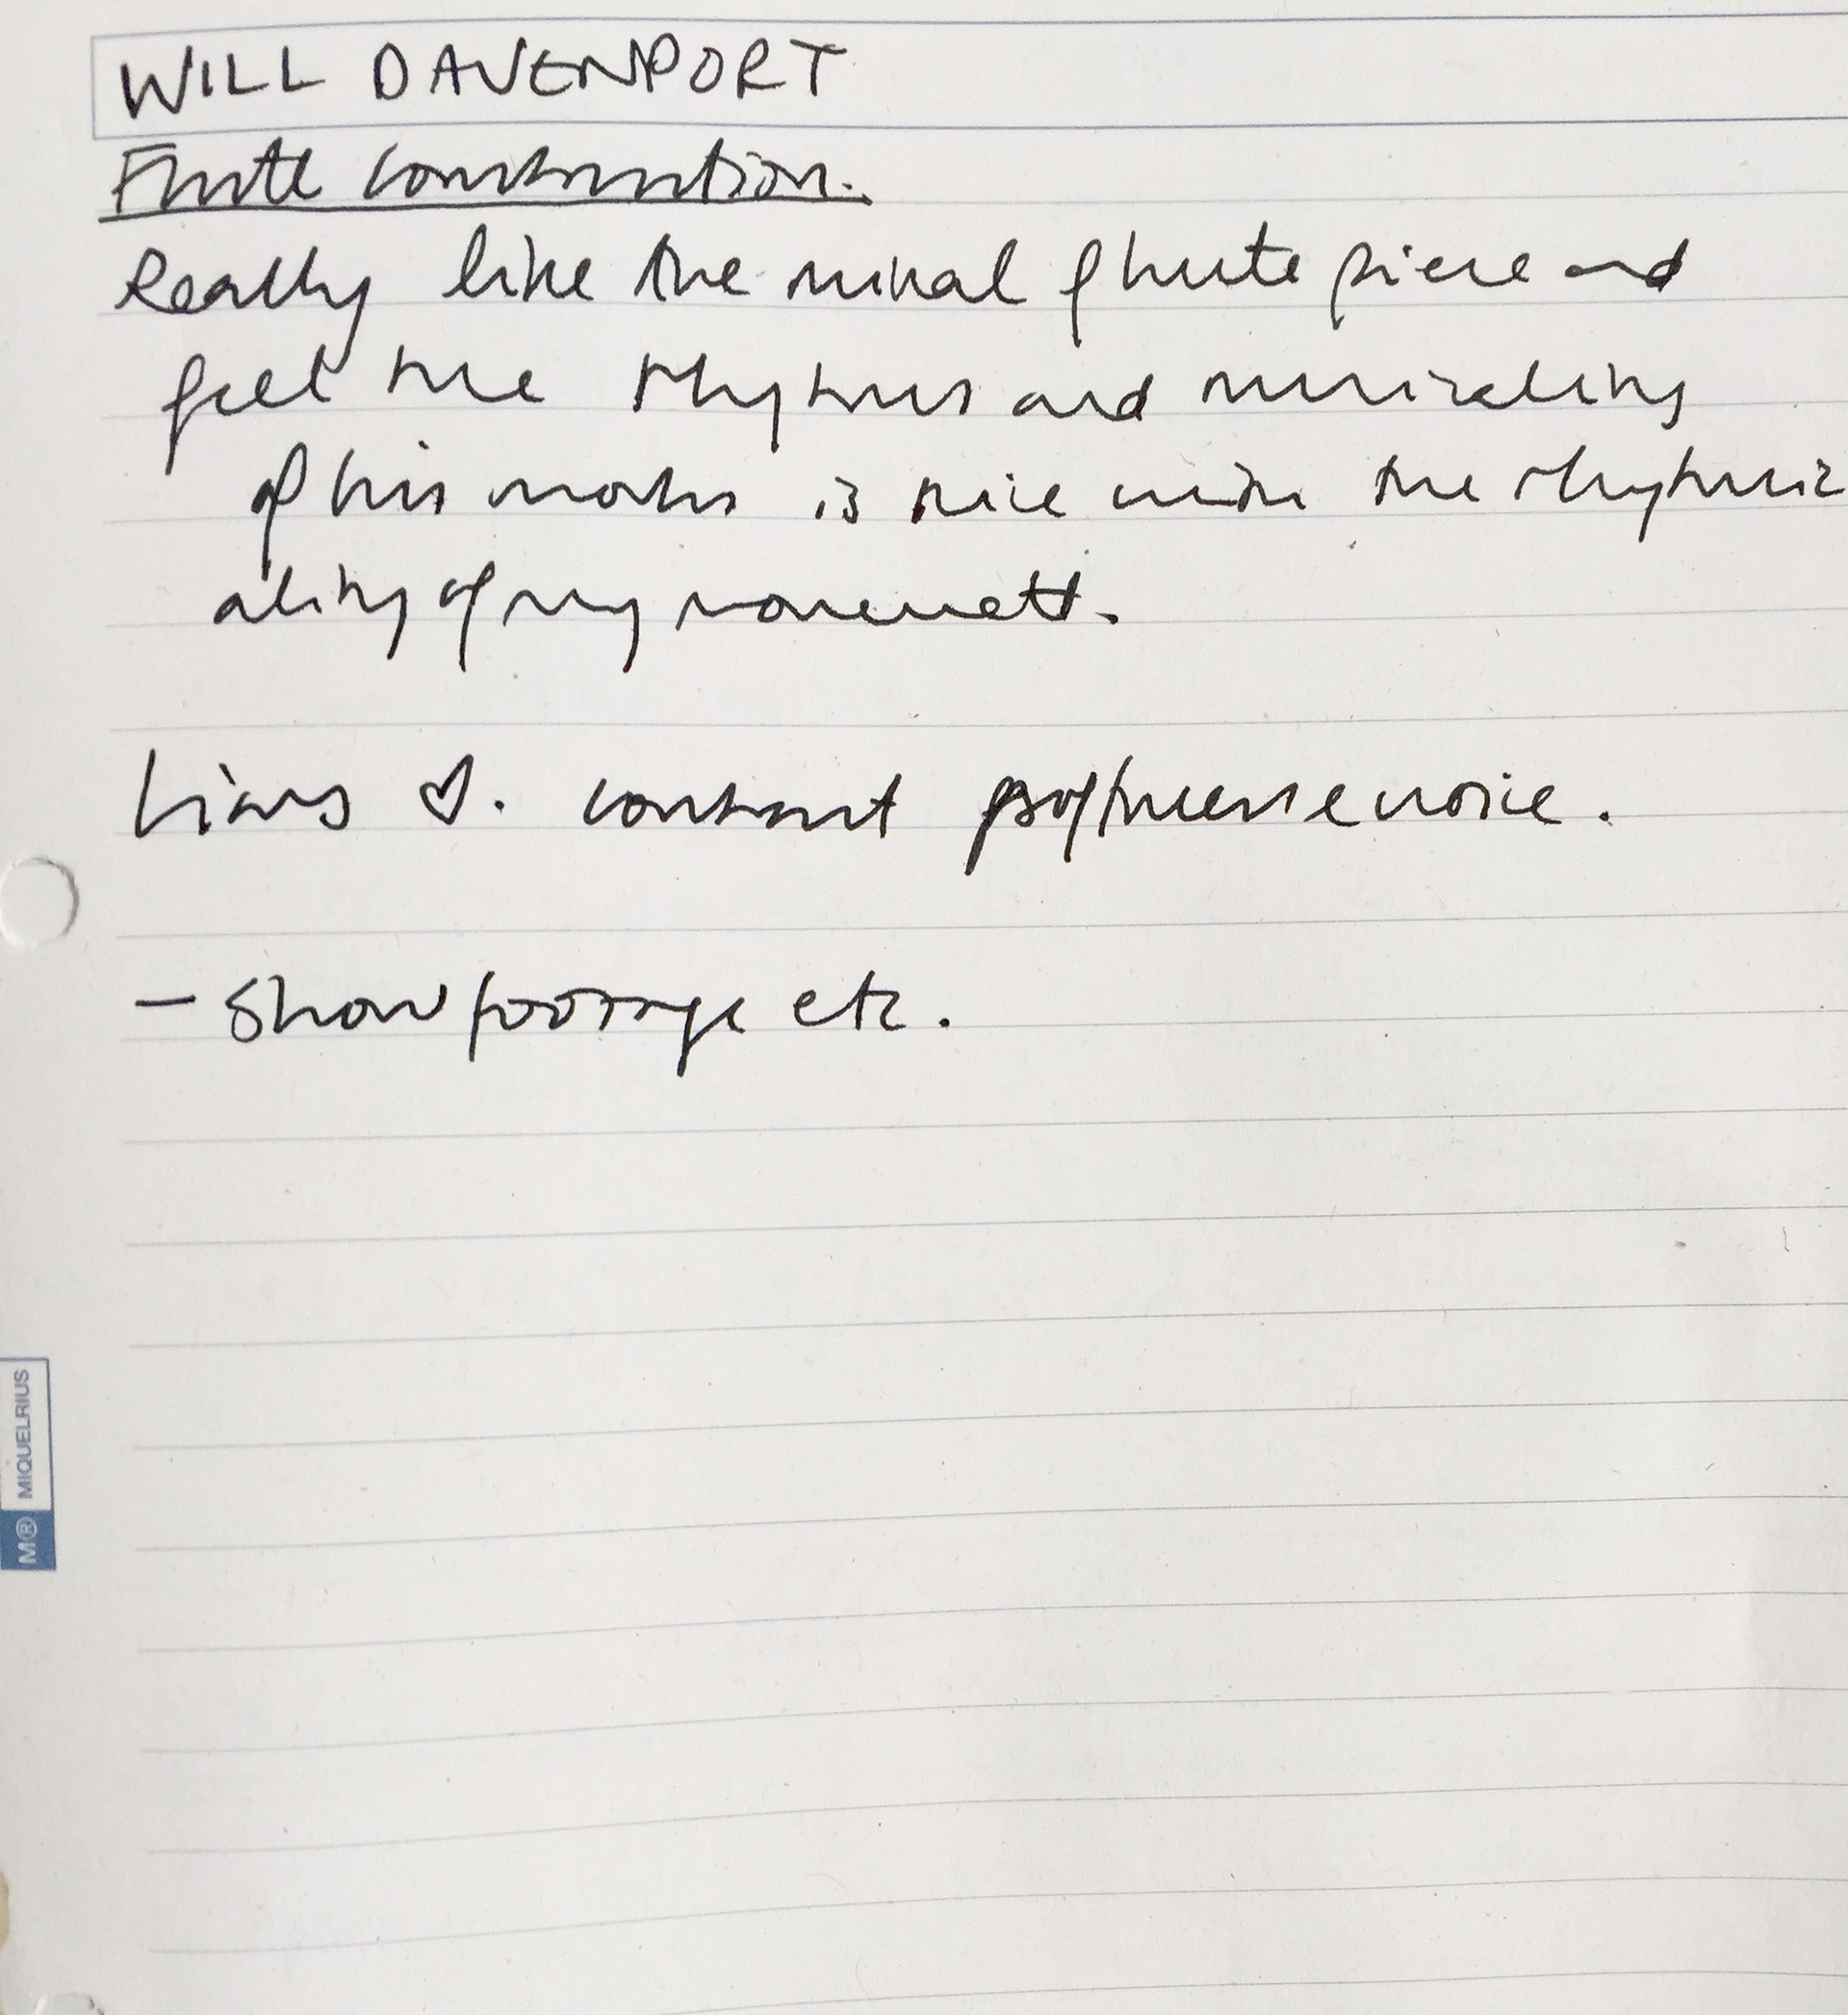 WILL DAVENPORT
Flute construction.
Really like the minal flute piece and
feel the rhythms and musicality
of his works is nice with the rhythmic
ality of my movement.
Lians ♡. constant noise.
- Show footage etc.
M® MIQUELRIUS